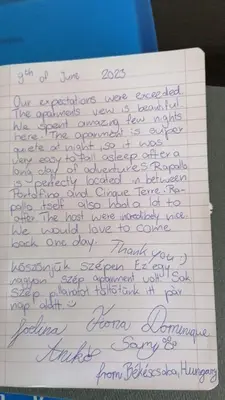 9th of June 2023
Our expectations were exceeded.
The apartments view is beautiful
We spent amazing few nights
here. The apartment is super
quiete at night, so it was
very easy to fall asleep after a
long day of adventures. Rapallo
is perfectly located in between
Portofino and Cinque Terre. Ra-
pallo itself also had a lot to
offer. The host were incredibly nice.
We would love to come
back one day. Thank you :)
Köszönjük szépen Ez egy
nagyon szép apartment volt. Sok
szép pillanatot töltöttünk itt pár
nap alatt
Ilona Dominique
Anikó Samy
from Békéscsaba, Hungary